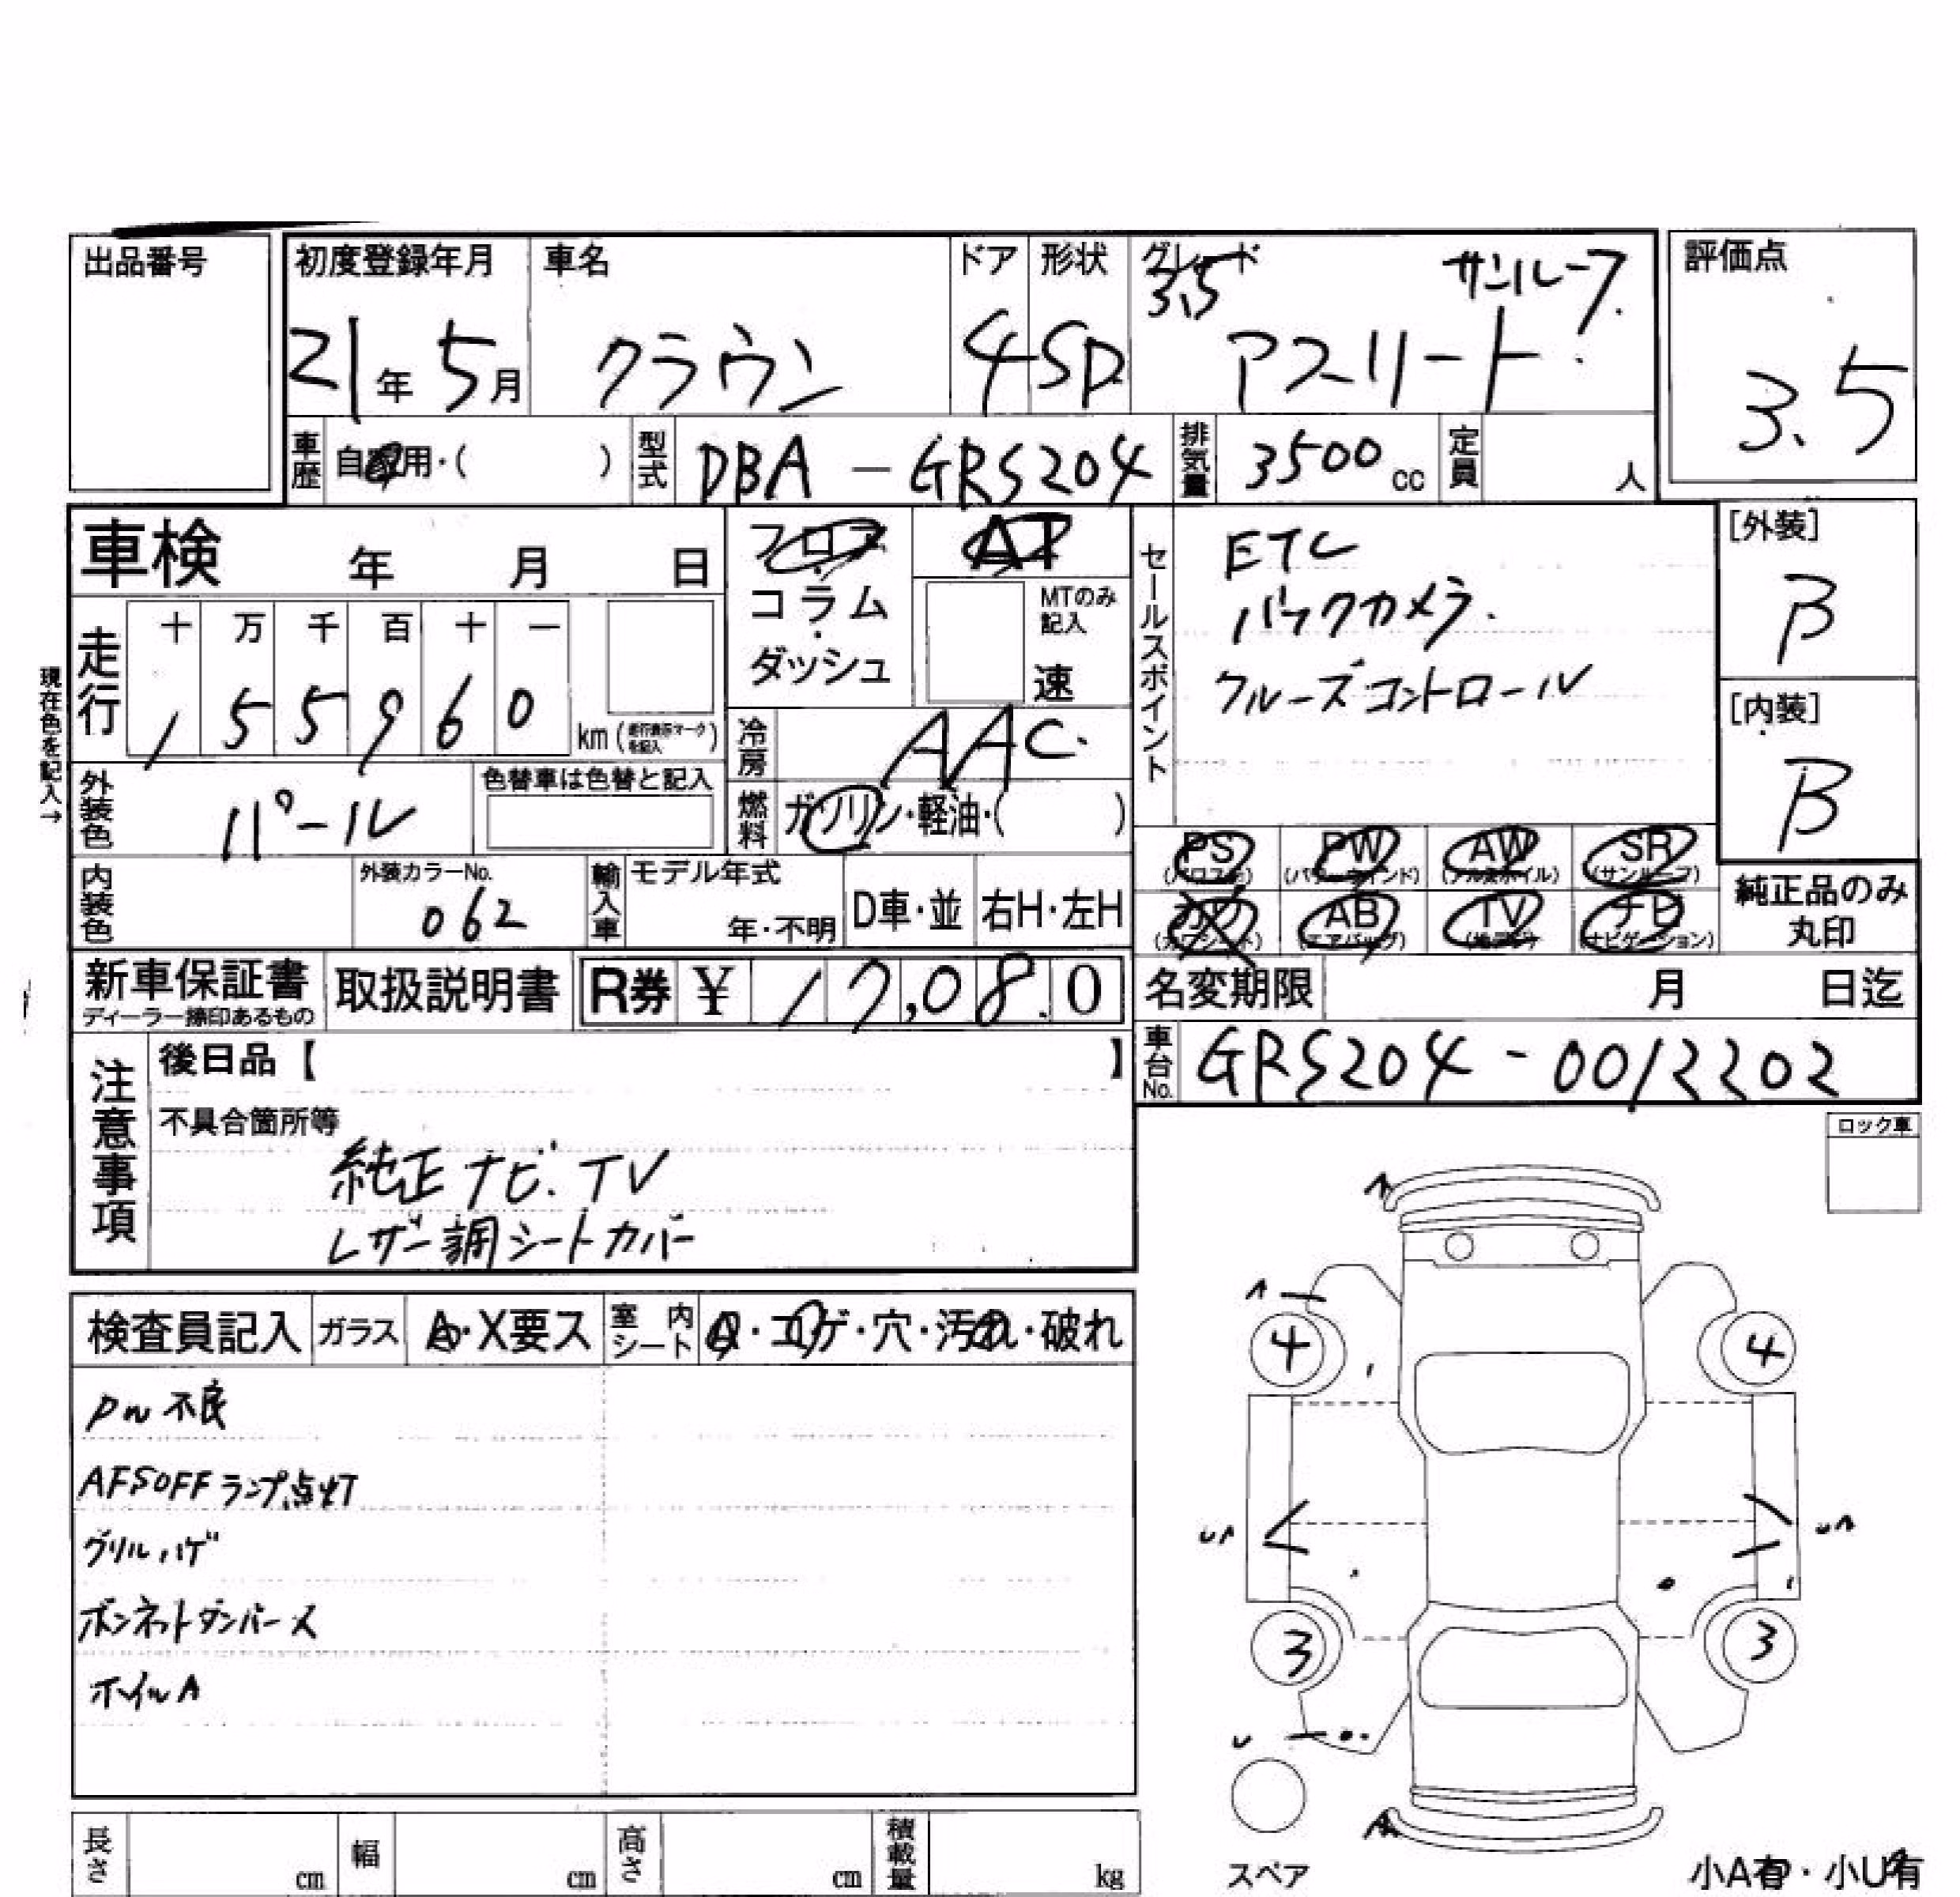 出品番号
初度登録年月 車名 ドア 形状 グレード 評価点
3.5 サンルーフ
21年5月 クラウン 4 SD アスリート 3.5
車歴 自家用・( ) 型式 DBA-GRS204 排気量 3500cc 定員 人
車検 年 月 日
フロア・コラム・ダッシュ
AT
MTのみ記入
速
セールスポイント
ETC
バックカメラ
クルーズコントロール
[外装]
B
[内装]
B
現在色を記入→
走行 十 万 千 百 十 一
1 5 5 9 6 0 km
冷房 AAC
外装色 パール 色替車は色替と記入
燃料 ガソリン・軽油・( )
PS PW AW SR
(パワステ) (パワーウインド) (アルミホイル) (サンルーフ)
カワ AB TV ナビ
(カワシート) (エアバッグ) (ナビゲーション)
純正品のみ
丸印
内装色 外装カラーNo. 062 輸入車 モデル年式 年・不明 D車・並 右H・左H
新車保証書 取扱説明書 R券 ¥ 17,080
ディーラー捺印あるもの
名変期限 月 日迄
車台No. GRS204-0012202
注意事項
後日品【 】
不具合箇所等
純正ナビ.TV
レザー調シートカバー
ロック車
検査員記入 ガラス A・X要ス 室内シート ・コゲ・穴・汚れ・破れ
PW不良
AFSOFFランプ点灯
グリルハゲ
ボンネットダンパー×
ホイルA
A
A
4 4
UA UA
3 3
U
A
スペア
小A有・小U有
長さ cm 幅 cm 高さ cm 積載量 kg